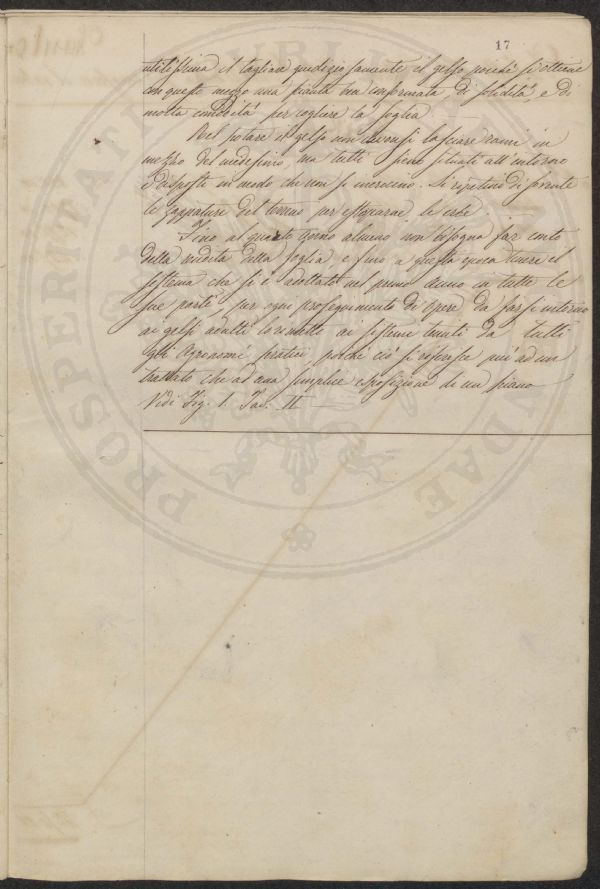 17
utilissima il tagliare giudiziosamente il gelso poichè si ottiene
con questo mezzo una pianta ben conformata, di solidità, e di
molta comodità per cogliere la foglia
Nel potare il gelso non devonsi lasciare rami in
mezzo del medesimo, ma tutti siano situati all'intorno
e disposti in modo che non si increcino. Si ripetino di sovente
le zappature del terreno per estirparne le erbe.
Fino al quarto anno almeno non bisogna far conto
della rendita della foglia e fino a questa epoca tenere il
sistema che si è adottato nel primo anno in tutte le
sue parti, per ogni proseguimento di opere da farsi intorno
ai gelsi adulti lo rimetto ai sistemi tenuti da tutti
gli Agronomi pratici, poichè ciò si riferisce più ad un
trattato che ad una semplice esposizione di un piano
Vedi Fig. 1. Tav. II
PROSPERITATI PUBLICAE AUGENDAE